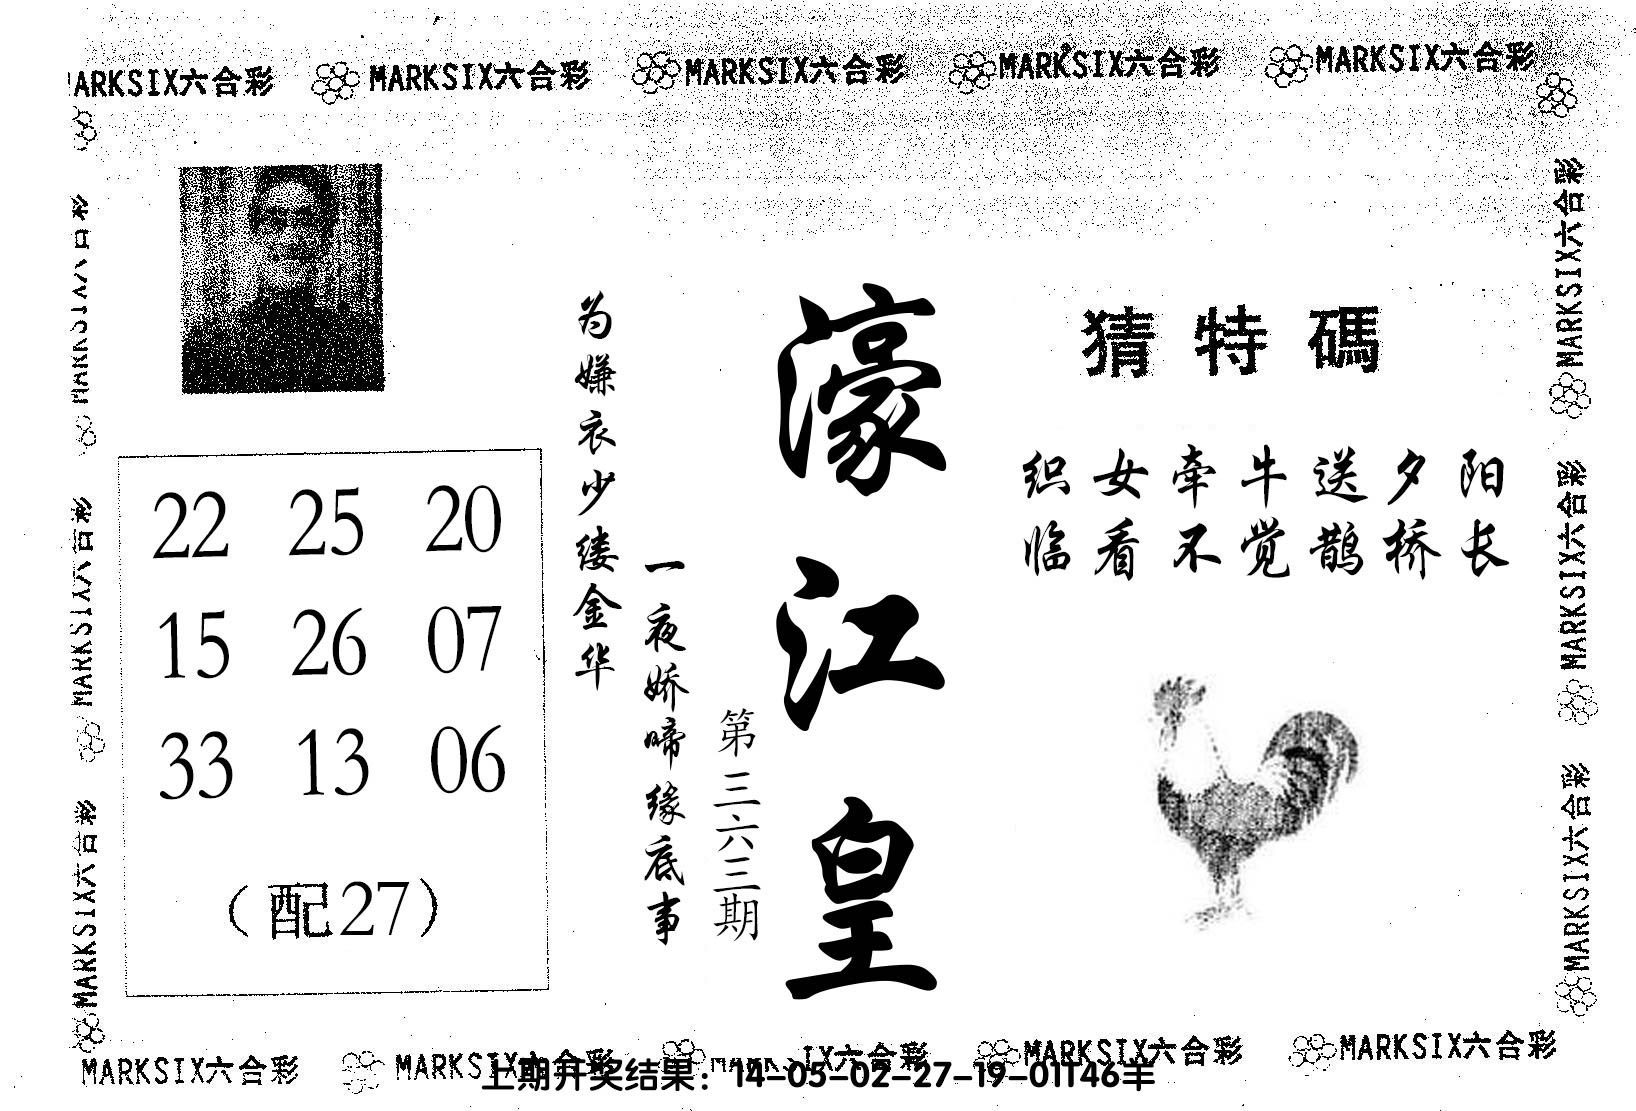 MARKSIX六合彩 MARKSIX六合彩 MARKSIX六合彩 MARKSIX六合彩 MARKSIX六合彩
猜特碼
织女牵牛送夕阳
临看不觉鹊桥长
濠江皇
第三六三期
一夜娇啼缘底事
为嫌衣少缕金华
22 25 20
15 26 07
33 13 06
（配27）
MARKSIX六合彩
MARKSIX六合彩
MARKSIX六合彩
MARKSIX六合彩
MARKSIX六合彩
MARKSIX六合彩
MARKSIX六合彩 MARKSIX六合彩 MARKSIX六合彩 MARKSIX六合彩
上期开奖结果：14-05-02-27-19-01T46羊